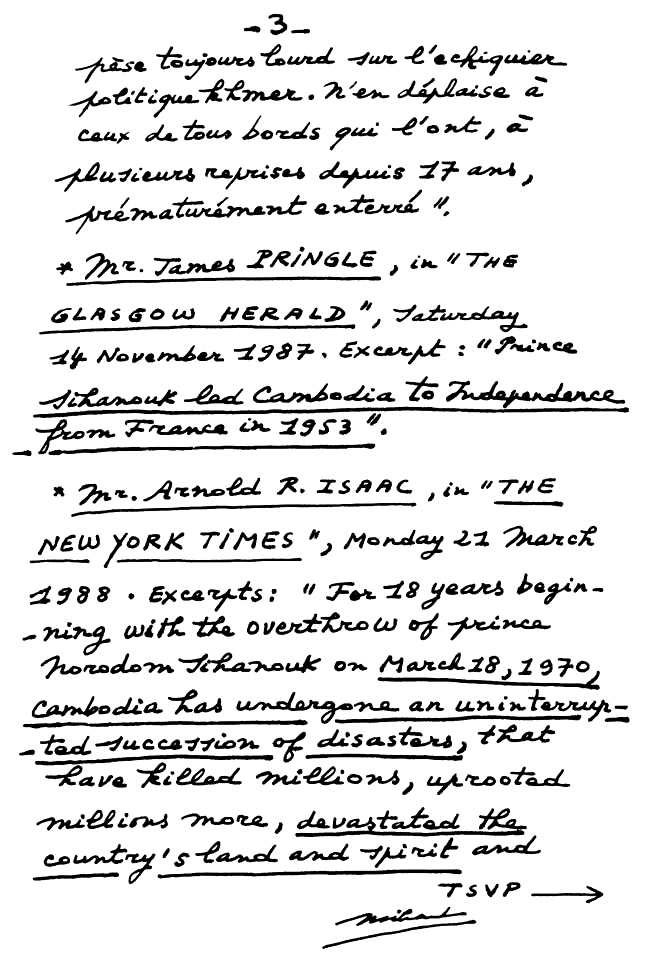 - 3 -
pèse toujours lourd sur l'echiquier
politique khmer. N'en déplaise à
ceux de tous bords qui l'ont, à
plusieurs reprises depuis 17 ans,
prématurément enterré ".
* Mr. James PRINGLE, in " THE
GLASGOW HERALD ", Saturday
14 November 1987. Excerpt : " Prince
Sihanouk led Cambodia to Independence
from France in 1953 ".
* Mr. Arnold R. ISAAC, in " THE
NEW YORK TIMES ", Monday 21 March
1988. Excerpts : " For 18 years begin-
-ning with the overthrow of prince
Norodom Sihanouk on March 18, 1970,
Cambodia has undergone an uninterrup-
-ted succession of disasters, that
have killed millions, uprooted
millions more, devastated the
country's land and spirit and
TSVP →